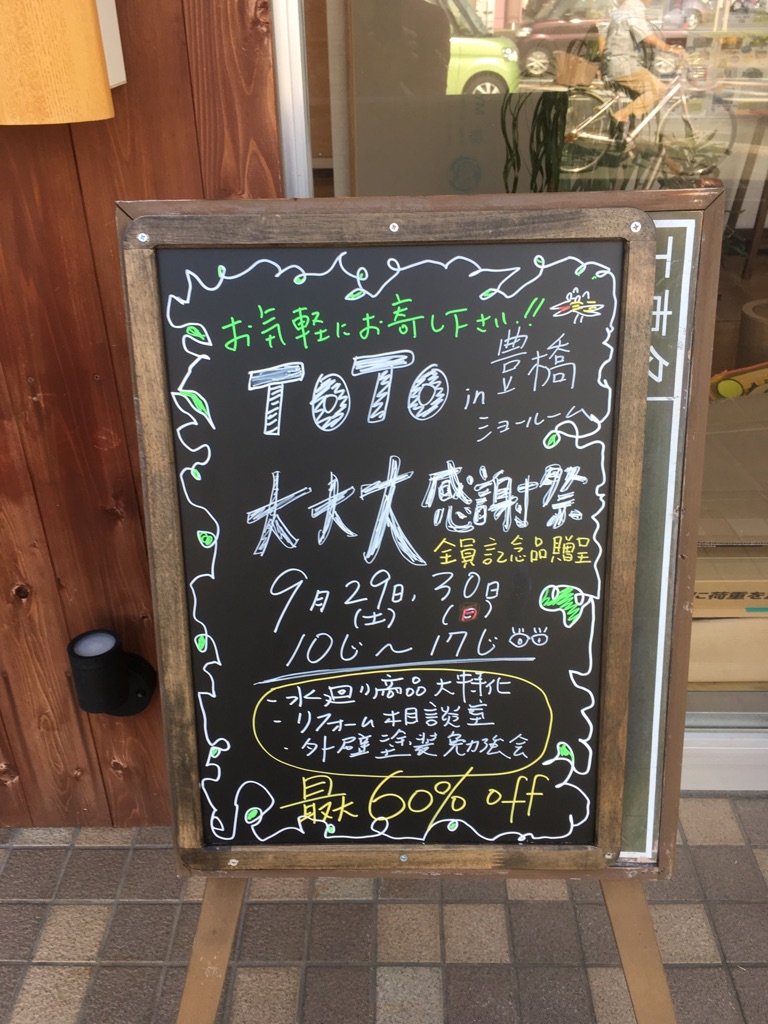 お気軽にお寄し下さい!!
ToTo in 豊橋
ショールーム
大大大感謝祭
全員記念品贈呈
9月29日(土)、30日(日)
10じ～17じ
・水廻り商品大特化
・リフォーム相談室
・外壁塗装勉強会
最大60% off
に荷重を